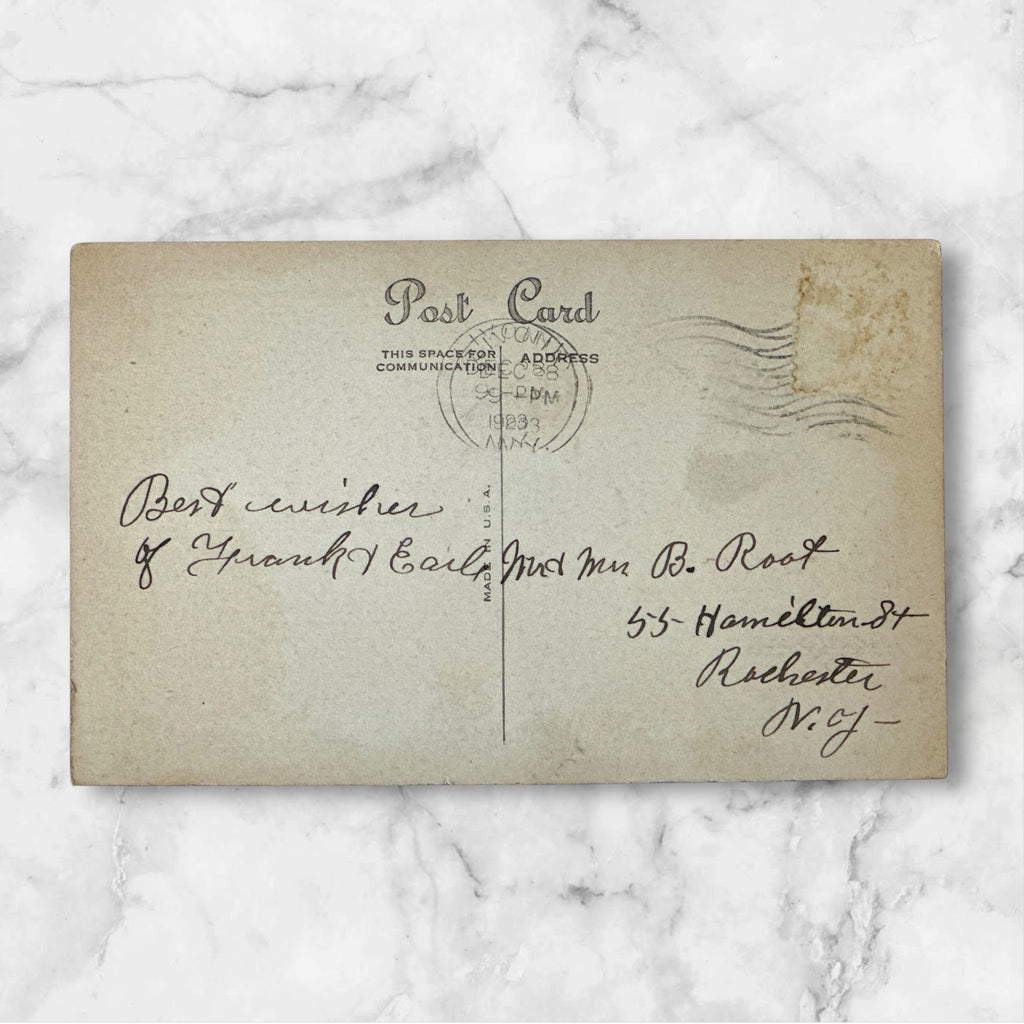 Post Card
THIS SPACE FOR
COMMUNICATION
ADDRESS
DEC 8
9-PM
1923
N.Y.
MADE IN U.S.A.
Best wishes
of Frank & Earl
Mr & Mrs B. Root
55 Hamilton St
Rochester
N.Y-